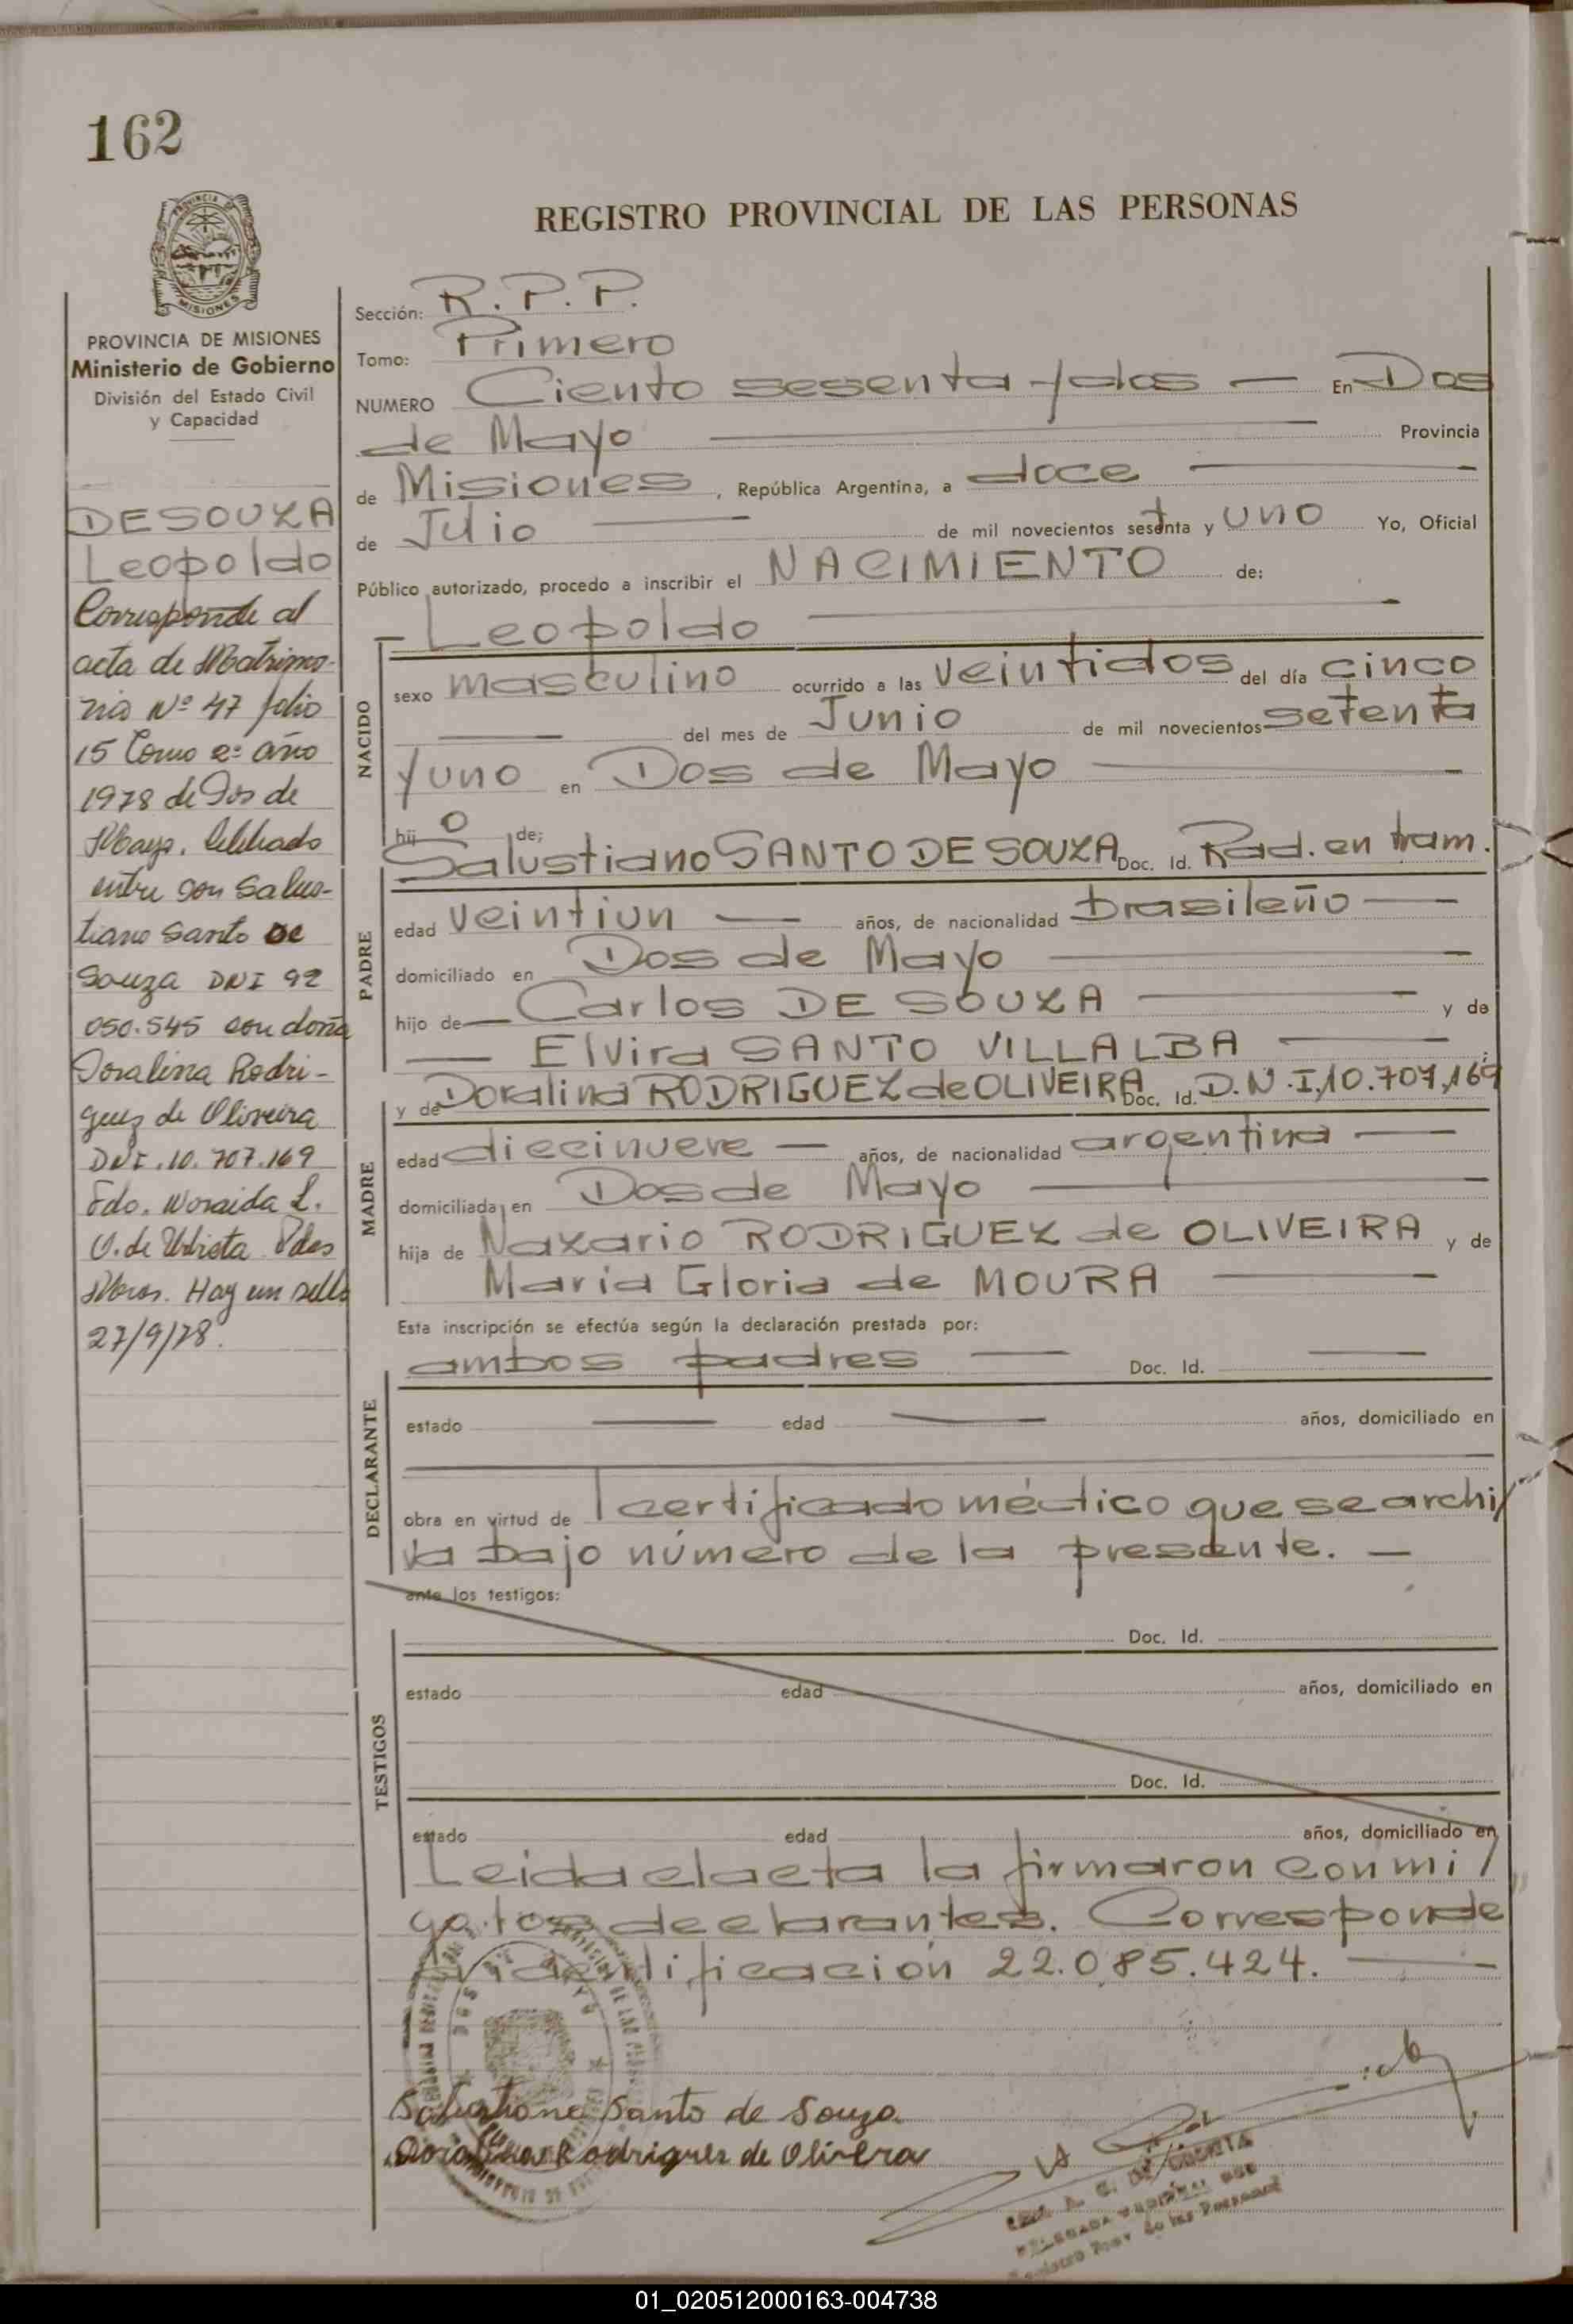 162
REGISTRO PROVINCIAL DE LAS PERSONAS
PROVINCIA DE MISIONES
Ministerio de Gobierno
División del Estado Civil
y Capacidad
DE SOUZA
Leopoldo
Corresponde al
acta de Matrimo-
nio Nº 47 folio
15 Tomo 2º año
1978 de Dos de
Mayo. Celebrado
entre don Salus-
tiano Santo De
Souza DNI 92
050.545 con doña
Doralina Rodri-
guez de Oliveira
DNI.10.707.169
Fdo. Noraida L.
V. de Pdas
Mnes. Hay un sello
27/9/78.
Sección: R.P.P.
Tomo: Primero
NUMERO Ciento sesenta y dos — En Dos
de Mayo — Provincia
de Misiones, República Argentina, a doce —
de Julio — de mil novecientos setenta y uno Yo, Oficial
Público autorizado, procedo a inscribir el NACIMIENTO de:
— Leopoldo —
NACIDO
sexo masculino ocurrido a las veintidos del día cinco
— del mes de Junio de mil novecientos setenta
y uno en Dos de Mayo —
hijo de;
Salustiano SANTO DE SOUZA Doc. Id. Rad. en tram.
PADRE
edad veintiun — años, de nacionalidad brasileño —
domiciliado en Dos de Mayo —
hijo de — Carlos DE SOUZA — y de
— Elvira SANTO VILLALBA —
y de Doralina RODRIGUEZ de OLIVEIRA Doc. Id. D.N.I. 10.707.169
MADRE
edad diecinueve — años, de nacionalidad argentina —
domiciliada en Dos de Mayo —
hija de Nazario RODRIGUEZ de OLIVEIRA y de
Maria Gloria de MOURA —
Esta inscripción se efectúa según la declaración prestada por:
ambos padres — Doc. Id. —
DECLARANTE
estado — edad — años, domiciliado en
obra en virtud de certificado médico que se archi/
va bajo número de la presente. —
ante los testigos:
TESTIGOS
Doc. Id.
estado edad años, domiciliado en
Doc. Id.
estado edad años, domiciliado en
Leida el acta la firmaron conmi/
go los declarantes. Corresponde
identificación 22.085.424. —
Salustiano Santo de Souza
Doralina Rodrigues de Olivera
01_020512000163-004738